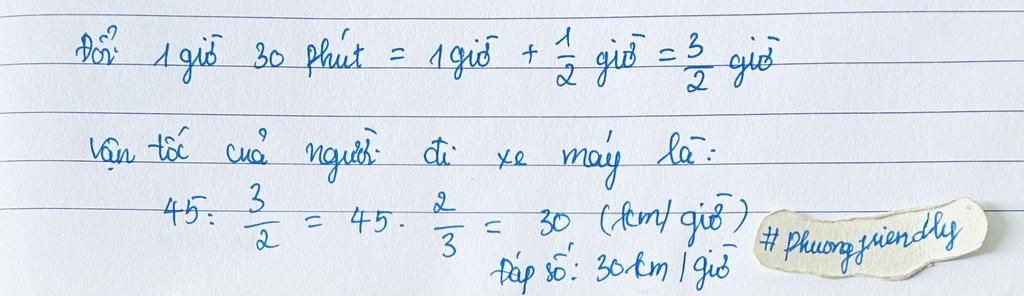 Đổi: 1 giờ 30 phút = 1 giờ + 1/2 giờ = 3/2 giờ
Vận tốc của người đi xe máy là:
45 : 3/2 = 45 . 2/3 = 30 (km/giờ)
Đáp số: 30 km/giờ
#phuongfriendly